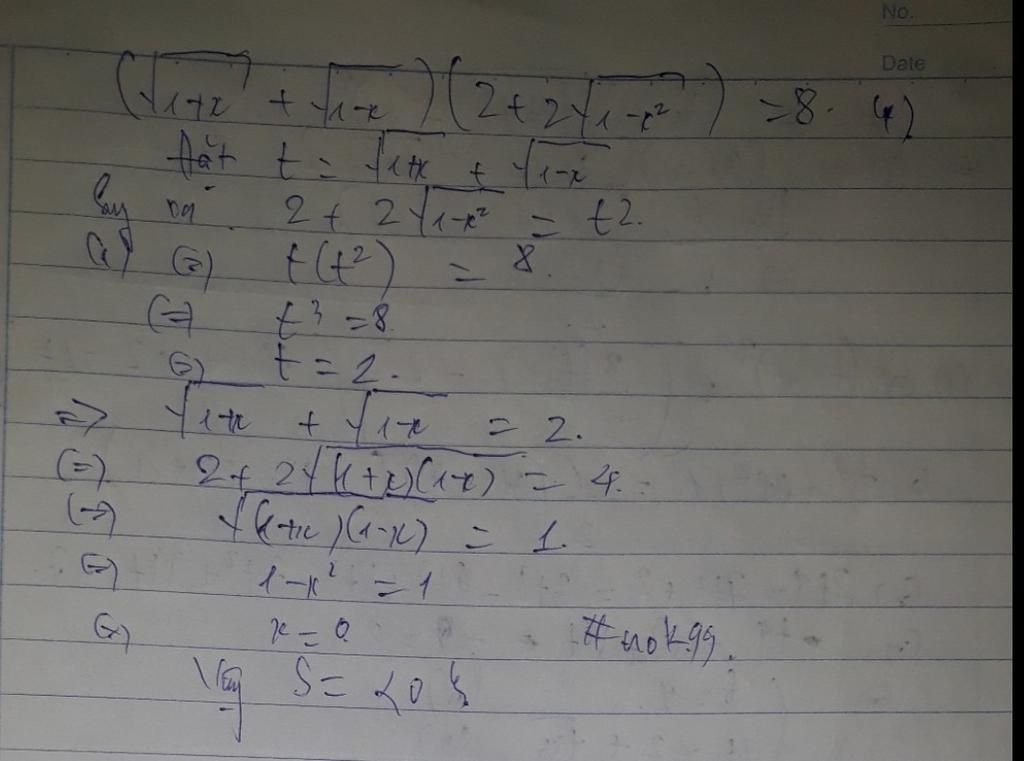 No.
Date
(√1+x + √1-x)(2+2√1-x²) = 8. (*)
Đặt t = √1+x + √1-x
Suy ra 2 + 2√1-x² = t2.
(*) (=) t(t²) = 8.
(=) t³ = 8
(=) t = 2.
=> √1+x + √1-x = 2.
(=) 2 + 2√(1+x)(1-x) = 4.
(=) √(1+x)(1-x) = 1.
(=) 1-x² = 1
(=) x = 0 #nok99.
Vậy S = {0}